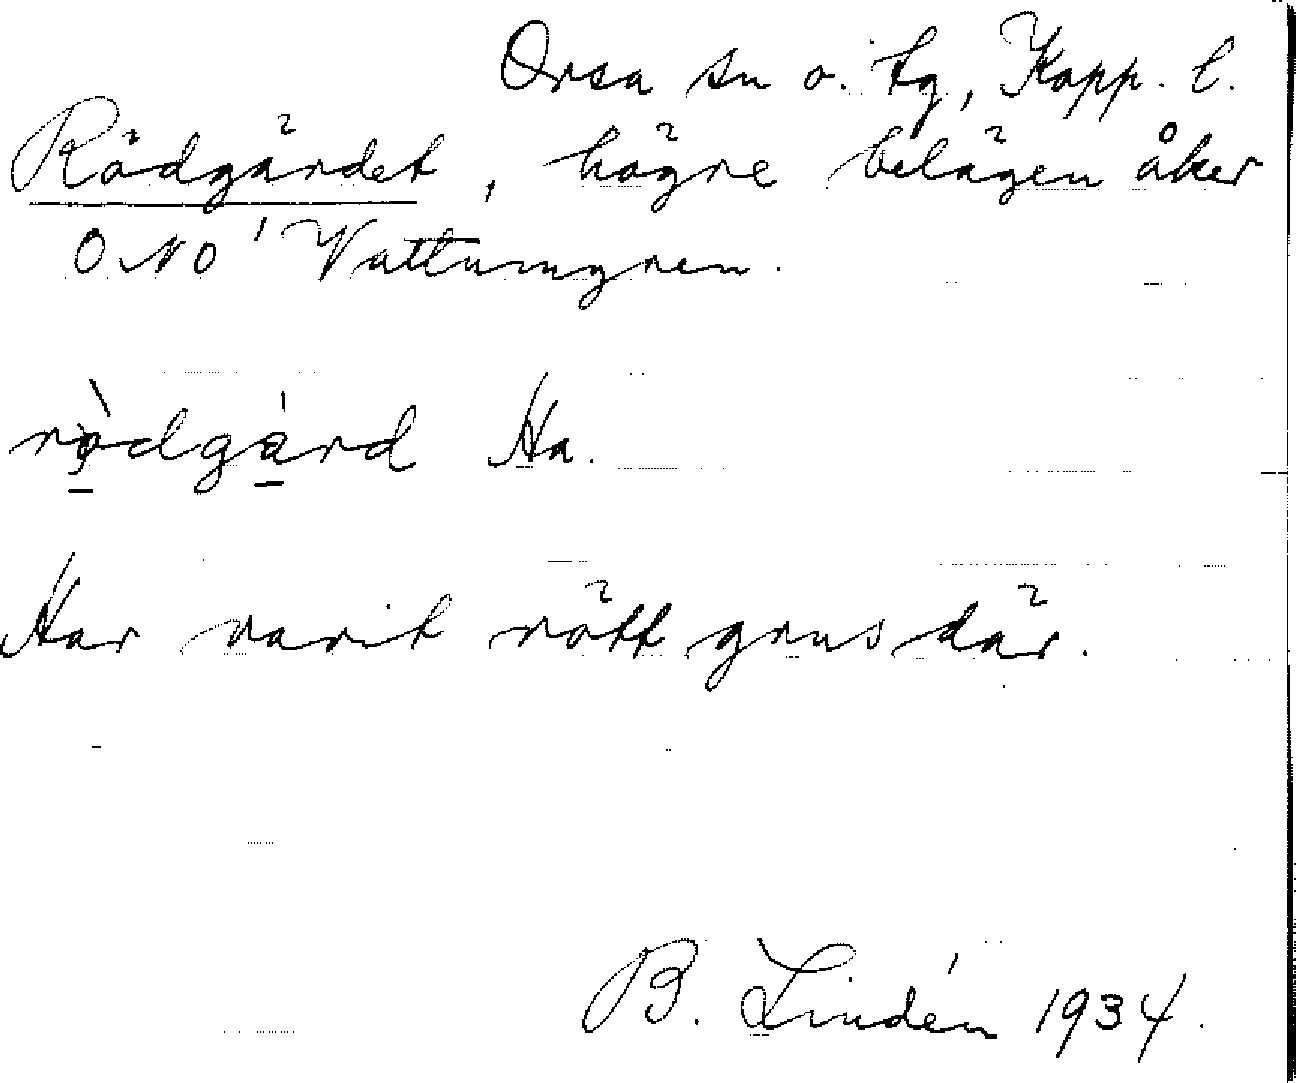 Orsa sn o. tg, Kopp. l.
Rödgärdet, högre belägen åker
O.NO Vattumyren.
rödgärd Ha.
Har varit rött grus där.
B. Lindén 1934.